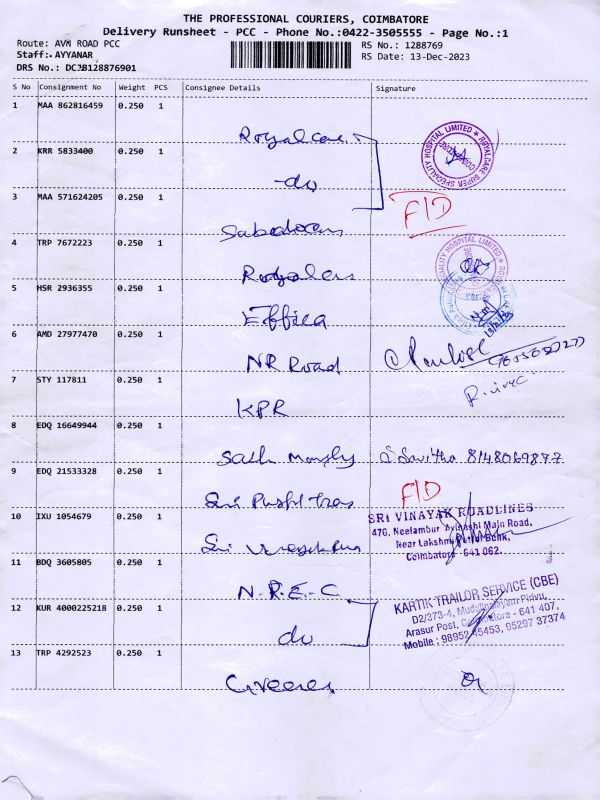 THE PROFESSIONAL COURIERS, COIMBATORE
Delivery Runsheet - PCC - Phone No.:0422-3505555 - Page No.:1
Route: AVN ROAD PCC
RS No.: 1288769
Staff: AYYANAR
RS Date: 13-Dec-2023
DRS No.: DC2B128876901
S No Consignment No Weight PCS Consignee Details Signature
1 MAA 862816459 0.250 1
Royalcare
ROYALCARE SUPER SPECIALITY HOSPITAL LIMITED
2 KRR 5833400 0.250 1
do
3 MAA 571624205 0.250 1
F/D
4 TRP 7672223 0.250 1
HOSPITAL LIMITED
5 HSR 2936355 0.250 1
Effica
6 AMD 27977470 0.250 1
NR Road
7 STY 117811 0.250 1
KPR
8 EDQ 16649944 0.250 1
Savitha 8148069877
9 EDQ 21533328 0.250 1
F/D
Sri
SRI VINAYAK ROADLINES
10 IXU 1054679 0.250 1
476, Neelambur Avinashi Main Road,
Near Lakshmi Petrol Bunk,
Sri
Coimbatore - 641 062.
11 BDQ 3605805 0.250 1
N.R.E.C
KARTIK TRAILOR SERVICE (CBE)
12 KUR 4000225218 0.250 1
D2/373-4, Mudalipalayam Pirivu,
Arasur Post, Coimbatore - 641 407,
do
Mobile : 98952 45453, 95297 37374
13 TRP 4292523 0.250 1